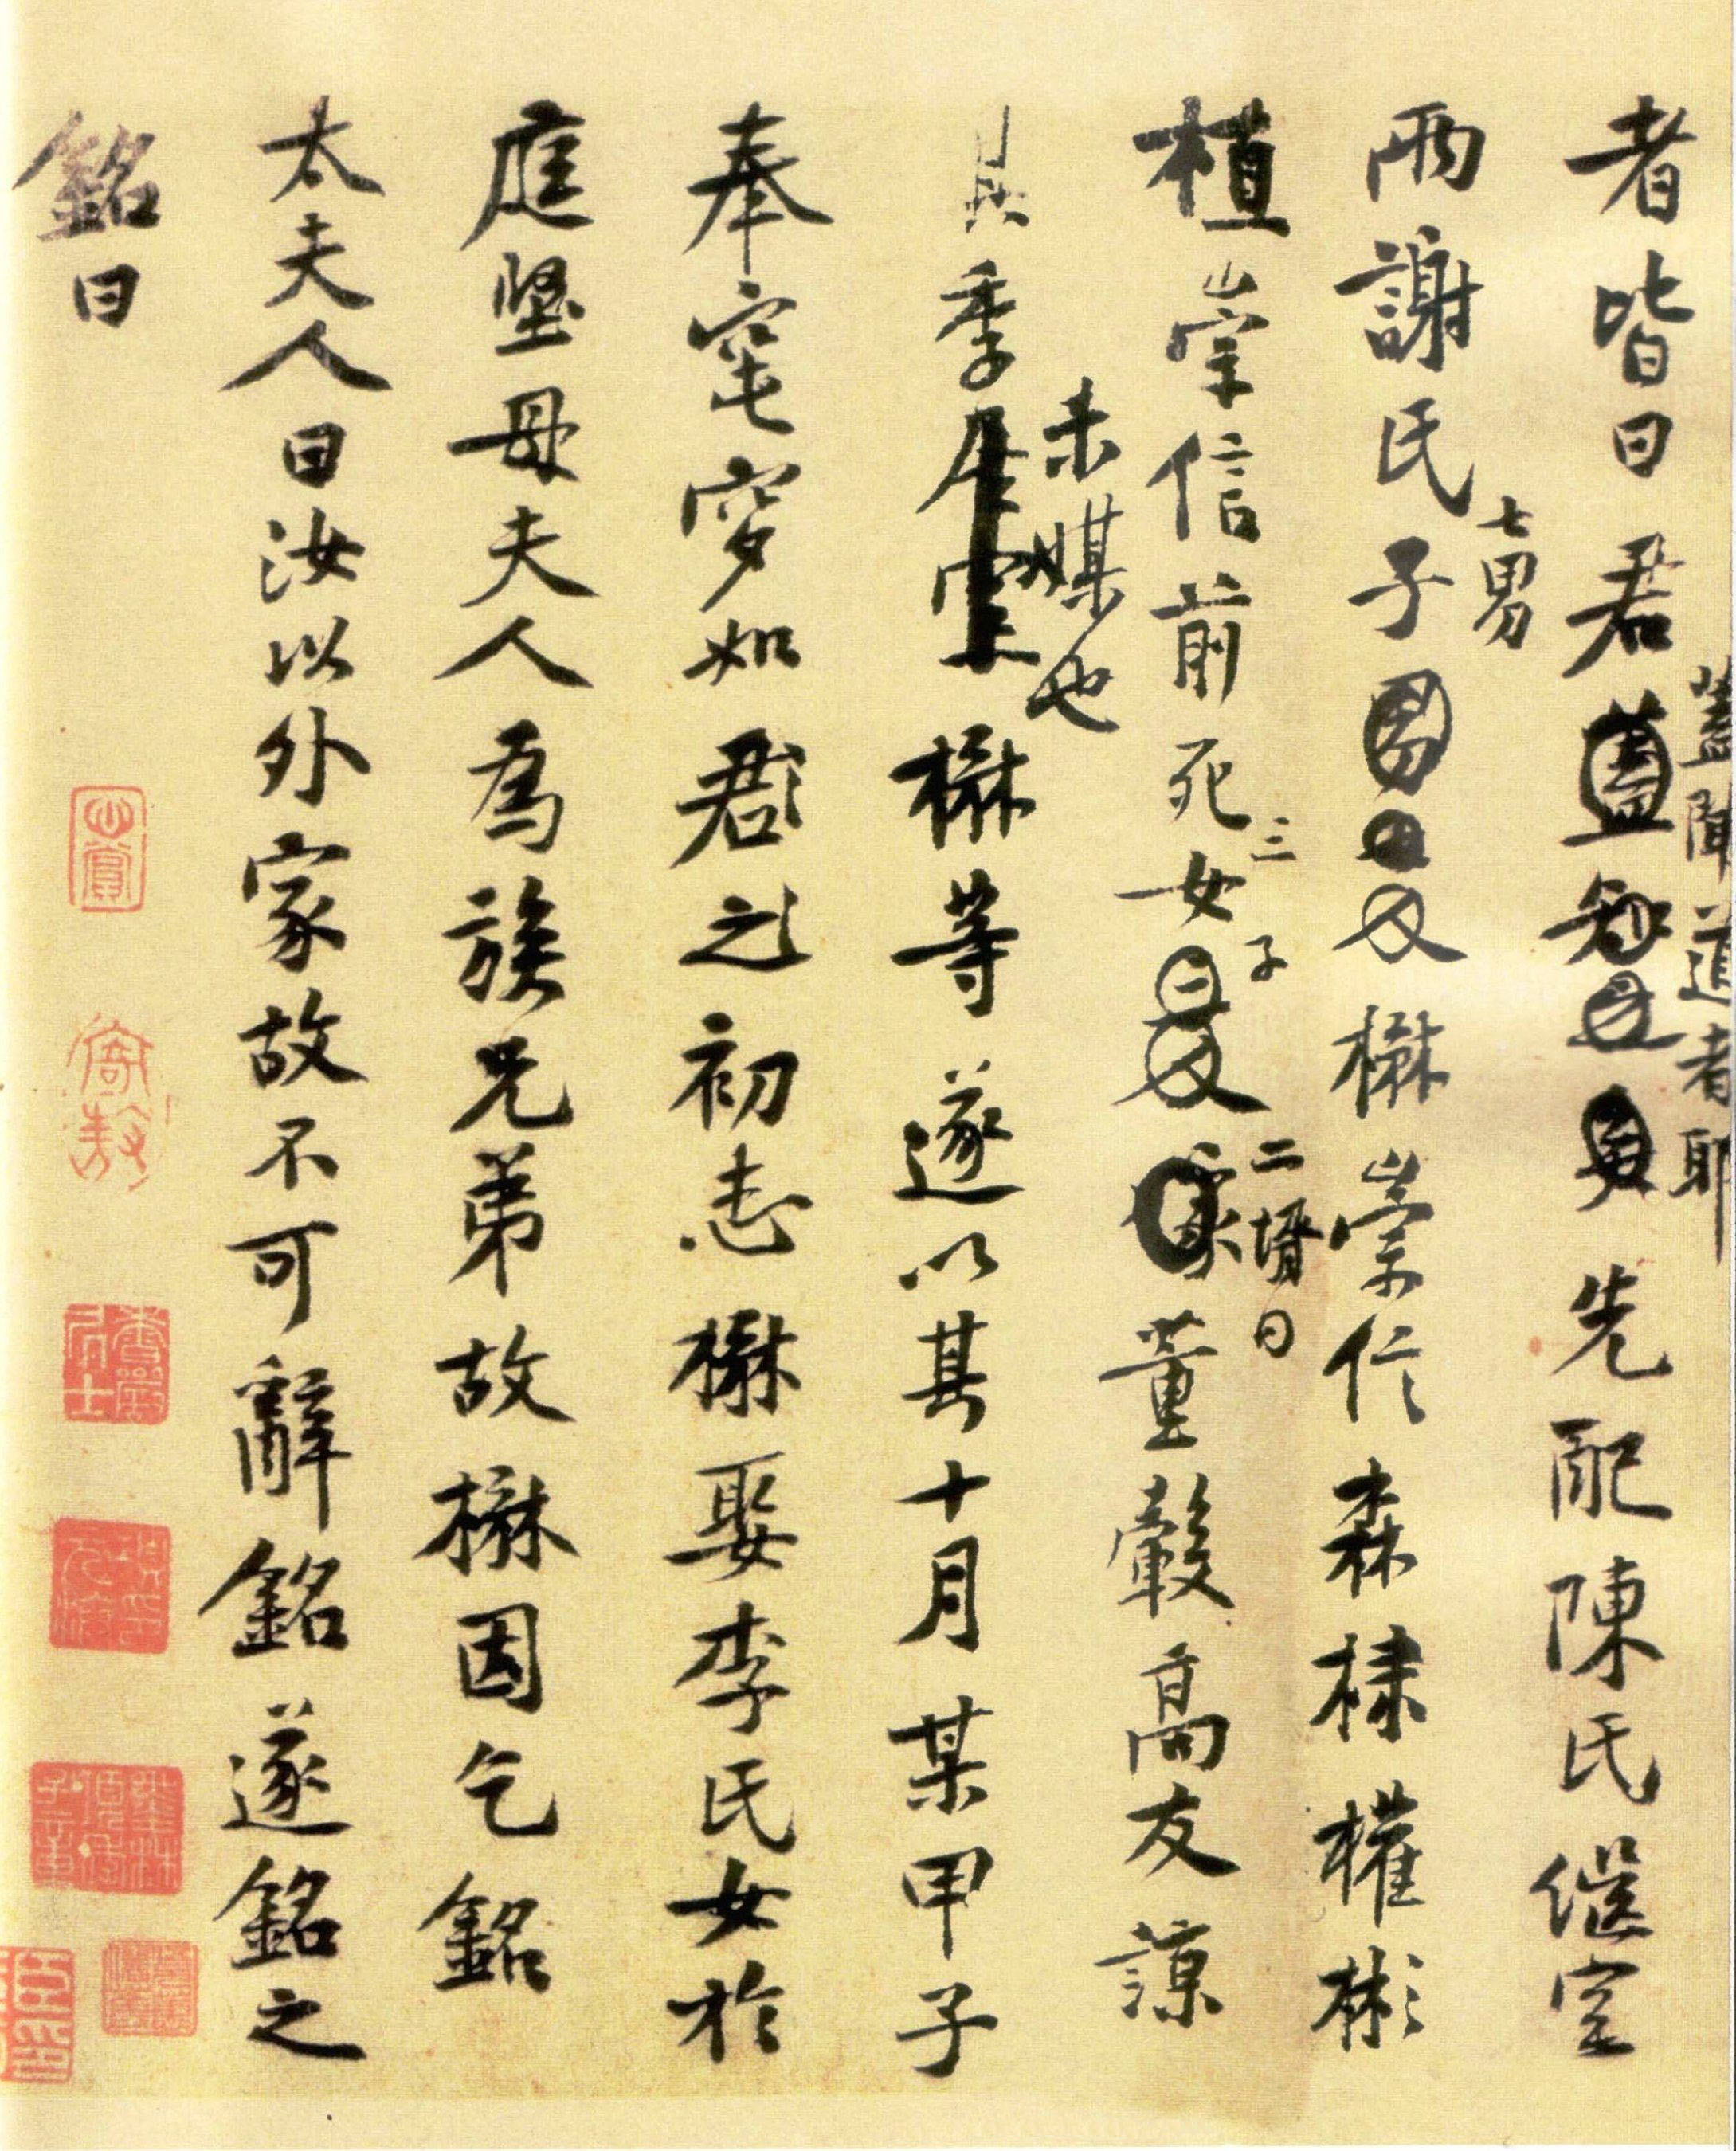 蓋聞道者耶
者皆曰君先配陳氏继室
七男
兩謝氏子楙崇仁森棣權彬
三子二壻曰
植崇信前死女董轂高友諒
未媒也
其季楙等遂以其十月某甲子
奉窀穸如君之初志楙娶李氏女於
庭堅母夫人為族兄弟故楙因乞銘
太夫人曰汝以外家故不可辭銘遂銘之
銘曰